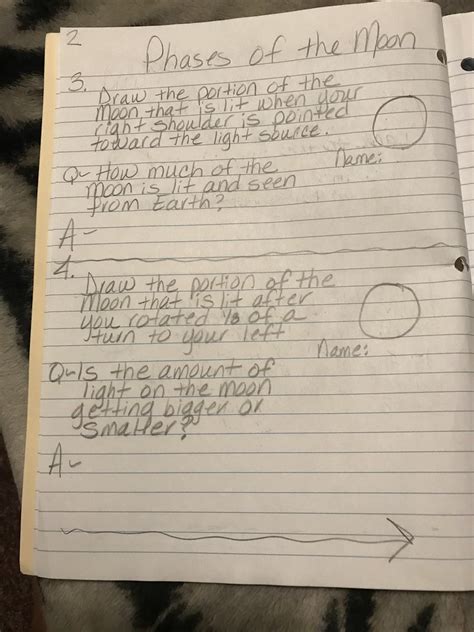 2
Phases of the Moon
3.
Draw the portion of the
Moon that is lit when your
right shoulder is pointed
toward the light source.
Name:
Q- How much of the
Moon is lit and seen
from Earth?
A-
4.
Draw the portion of the
Moon that is lit after
you rotated 1/8 of a
turn to your left
Name:
Q-Is the amount of
light on the moon
getting bigger or
smaller?
A-